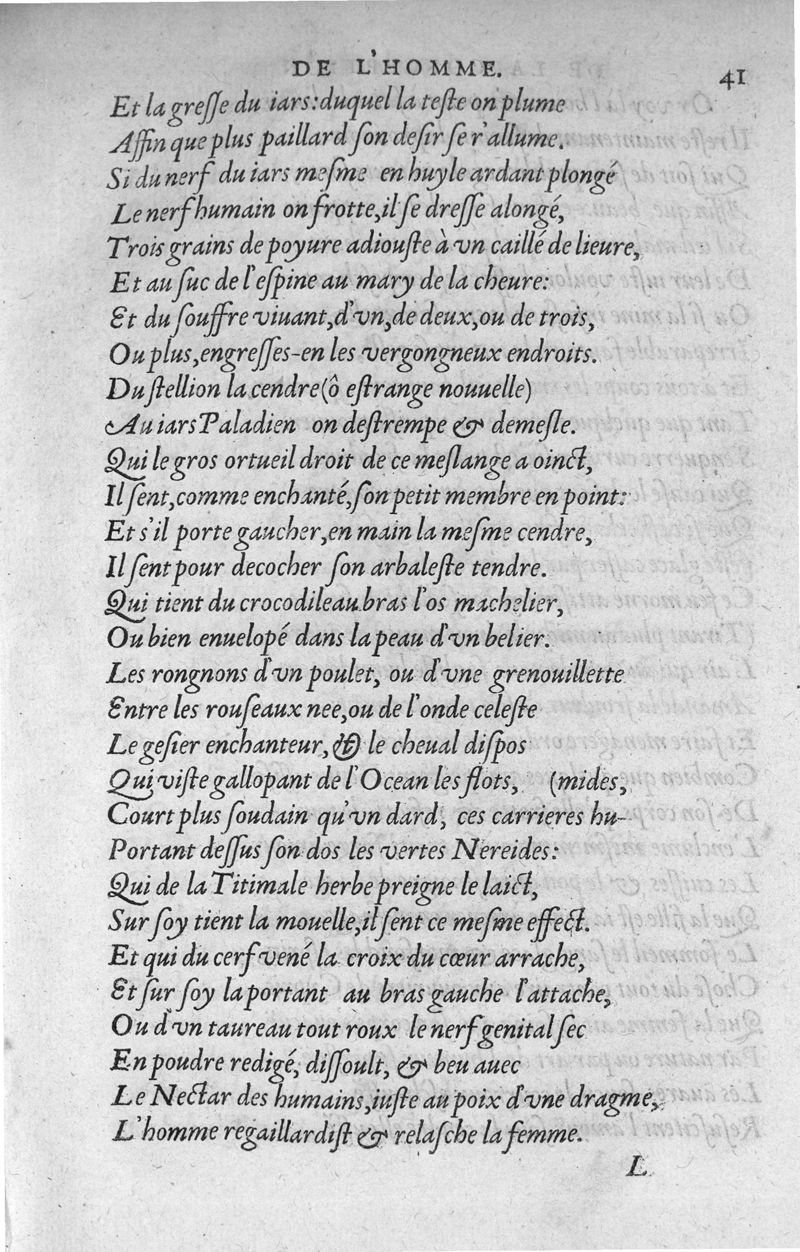 DE L'HOMME. 41
Et la gresse du iars: duquel la teste on plume
Affin que plus paillard son desir se r'allume.
Si du nerf du iars mesme en huyle ardant plongé
Le nerf humain on frotte, il se dresse alongé,
Trois grains de poyure adiouste à vn caillé de lieure,
Et au suc de l'espine au mary de la cheure:
Et du souffre viuant, d'vn, de deux, ou de trois,
Ou plus, engresses-en les vergongneux endroits.
Du stellion la cendre (ô estrange nouuelle)
Au iars Paladien on destrempe & demesle.
Qui le gros ortueil droit de ce meslange a oinct,
Il sent, comme enchanté, son petit membre en point:
Et s'il porte gaucher, en main la mesme cendre,
Il sent pour decocher son arbaleste tendre.
Qui tient du crocodile au bras l'os machelier,
Ou bien enuelopé dans la peau d'vn belier.
Les rongnons d'vn poulet, ou d'vne grenouillette
Entre les rouseaux nee, ou de l'onde celeste
Le gesier enchanteur, & le cheual dispos
Qui viste gallopant de l'Ocean les flots, (mides,
Court plus soudain qu'vn dard, ces carrieres hu-
Portant dessus son dos les vertes Nereides:
Qui de la Titimale herbe preigne le laict,
Sur soy tient la mouelle, il sent ce mesme effect.
Et qui du cerf vené la croix du cœur arrache,
Et sur soy la portant au bras gauche l'attache,
Ou d'vn taureau tout roux le nerf genital sec
En poudre redigé, dissoult, & beu auec
Le Nectar des humains, iuste au poix d'vne dragme,
L'homme regaillardist & relasche la femme.
L